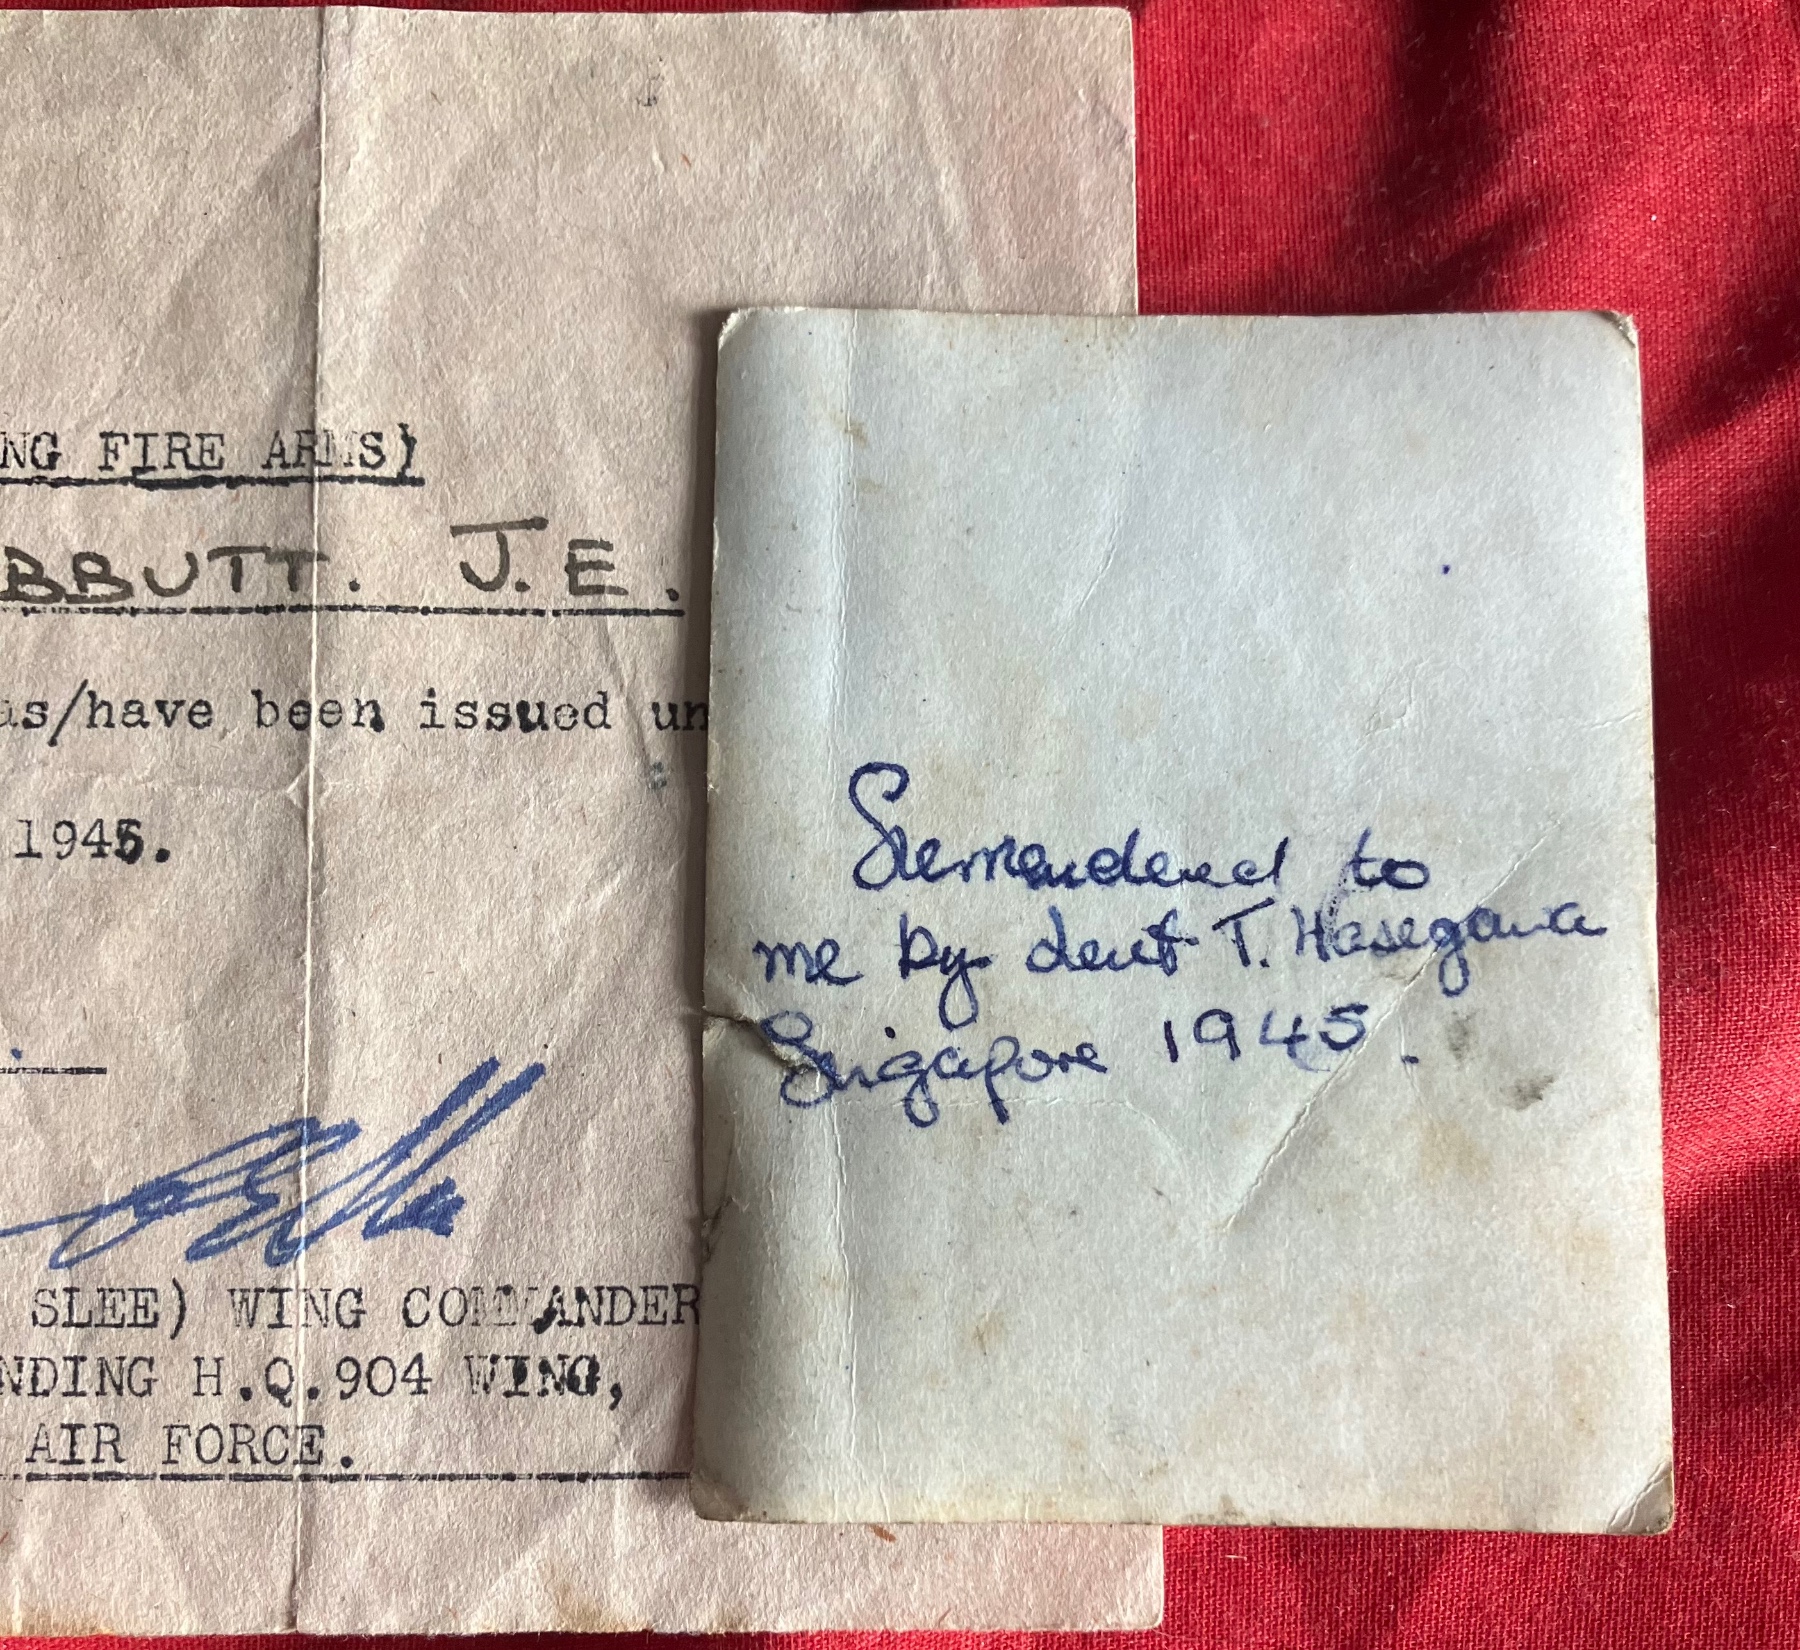 NG FIRE ARMS)
BBUTT. J.E.
as/have been issued un
1945.
SLEE) WING COMMANDER
NDING H.Q.904 WING,
AIR FORCE.
Surrendered to
me by Lieut T. Hasegawa
Singapore 1945.